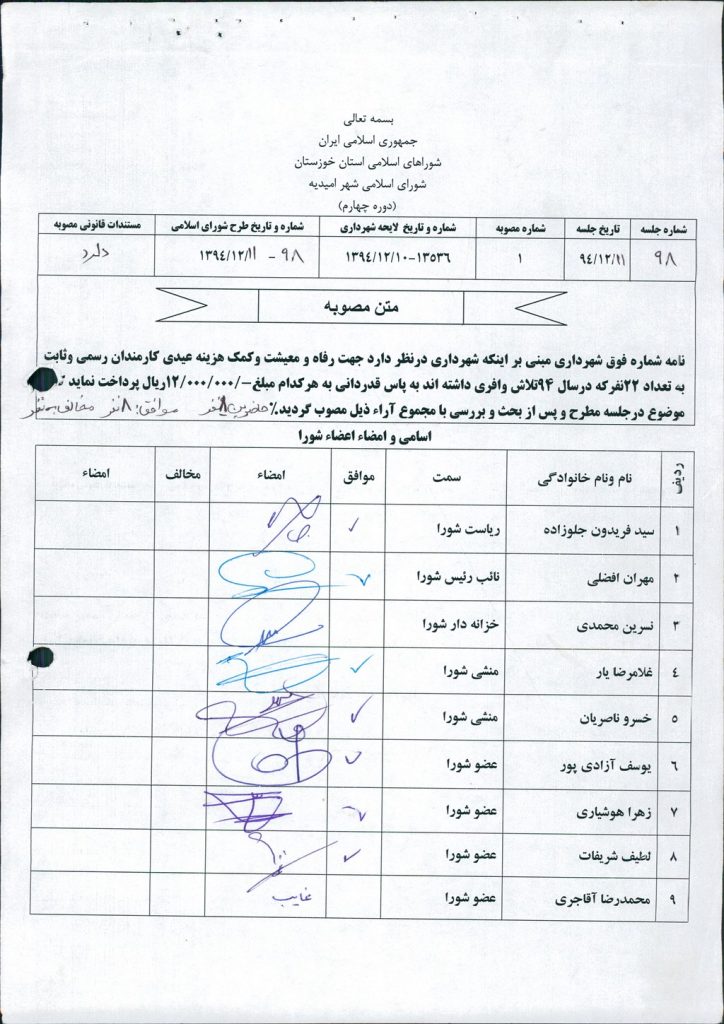 بسمه تعالی
جمهوری اسلامی ایران
شوراهای اسلامی استان خوزستان
شورای اسلامی شهر امیدیه
(دوره چهارم)
شماره جلسه تاریخ جلسه شماره مصوبه شماره و تاریخ لایحه شهرداری شماره و تاریخ طرح شورای اسلامی مستندات قانونی مصوبه
۹۸ ۹٤/۱۲/۱۱ ۱ ۱۳۹٤/۱۲/۱۰-۱۳۵۳٦ ۹۸ - ۱۳۹٤/۱۲/۱۱ دارد
متن مصوبه
نامه شماره فوق شهرداری مبنی بر اینکه شهرداری درنظر دارد جهت رفاه و معیشت وکمک هزینه عیدی کارمندان رسمی وثابت
به تعداد ۲۲نفرکه درسال ۹۴تلاش وافری داشته اند به پاس قدردانی به هرکدام مبلغ-/۱۲/۰۰۰/۰۰۰ریال پرداخت نماید
موضوع درجلسه مطرح و پس از بحث و بررسی با مجموع آراء ذیل مصوب گردید./ حاضرین ۸نفر موافق: ۸نفر مخالف: نفر
اسامی و امضاء اعضاء شورا
ردیف نام ونام خانوادگی سمت موافق امضاء مخالف امضاء
۱ سید فریدون جلوزاده ریاست شورا ✓
۲ مهران افضلی نائب رئیس شورا ✓
۳ نسرین محمدی خزانه دار شورا
٤ غلامرضا یار منشی شورا ✓
۵ خسرو ناصریان منشی شورا ✓
٦ یوسف آزادی پور عضو شورا ✓
۷ زهرا هوشیاری عضو شورا ✓
۸ لطیف شریفات عضو شورا ✓
۹ محمدرضا آقاجری عضو شورا غایب